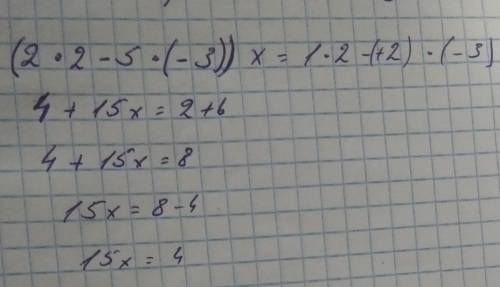 (2 · 2 - 5 · (-3)) x = 1 · 2 - (+2) · (-3)
4 + 15x = 2+6
4 + 15x = 8
15x = 8-4
15x = 4